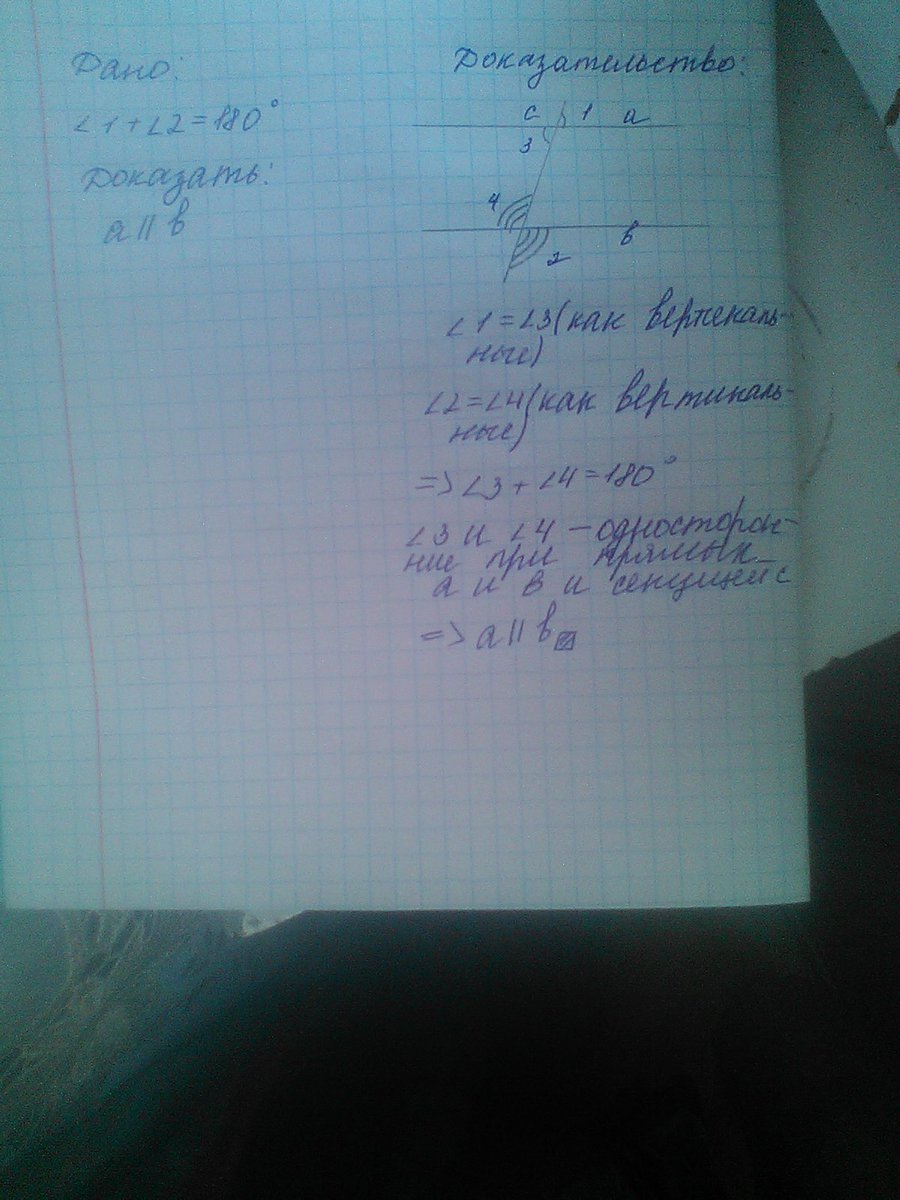 Дано:
∠1+∠2=180°
Доказать:
a || b
Доказательство:
c 1 a
3
4
2 b
∠1=∠3(как вертекаль-
ные)
∠2=∠4(как вертикаль-
ные)
=> ∠3+∠4=180°
∠3 и ∠4 – односторон-
ние при прямых
a и в и секущей c
=> a || b